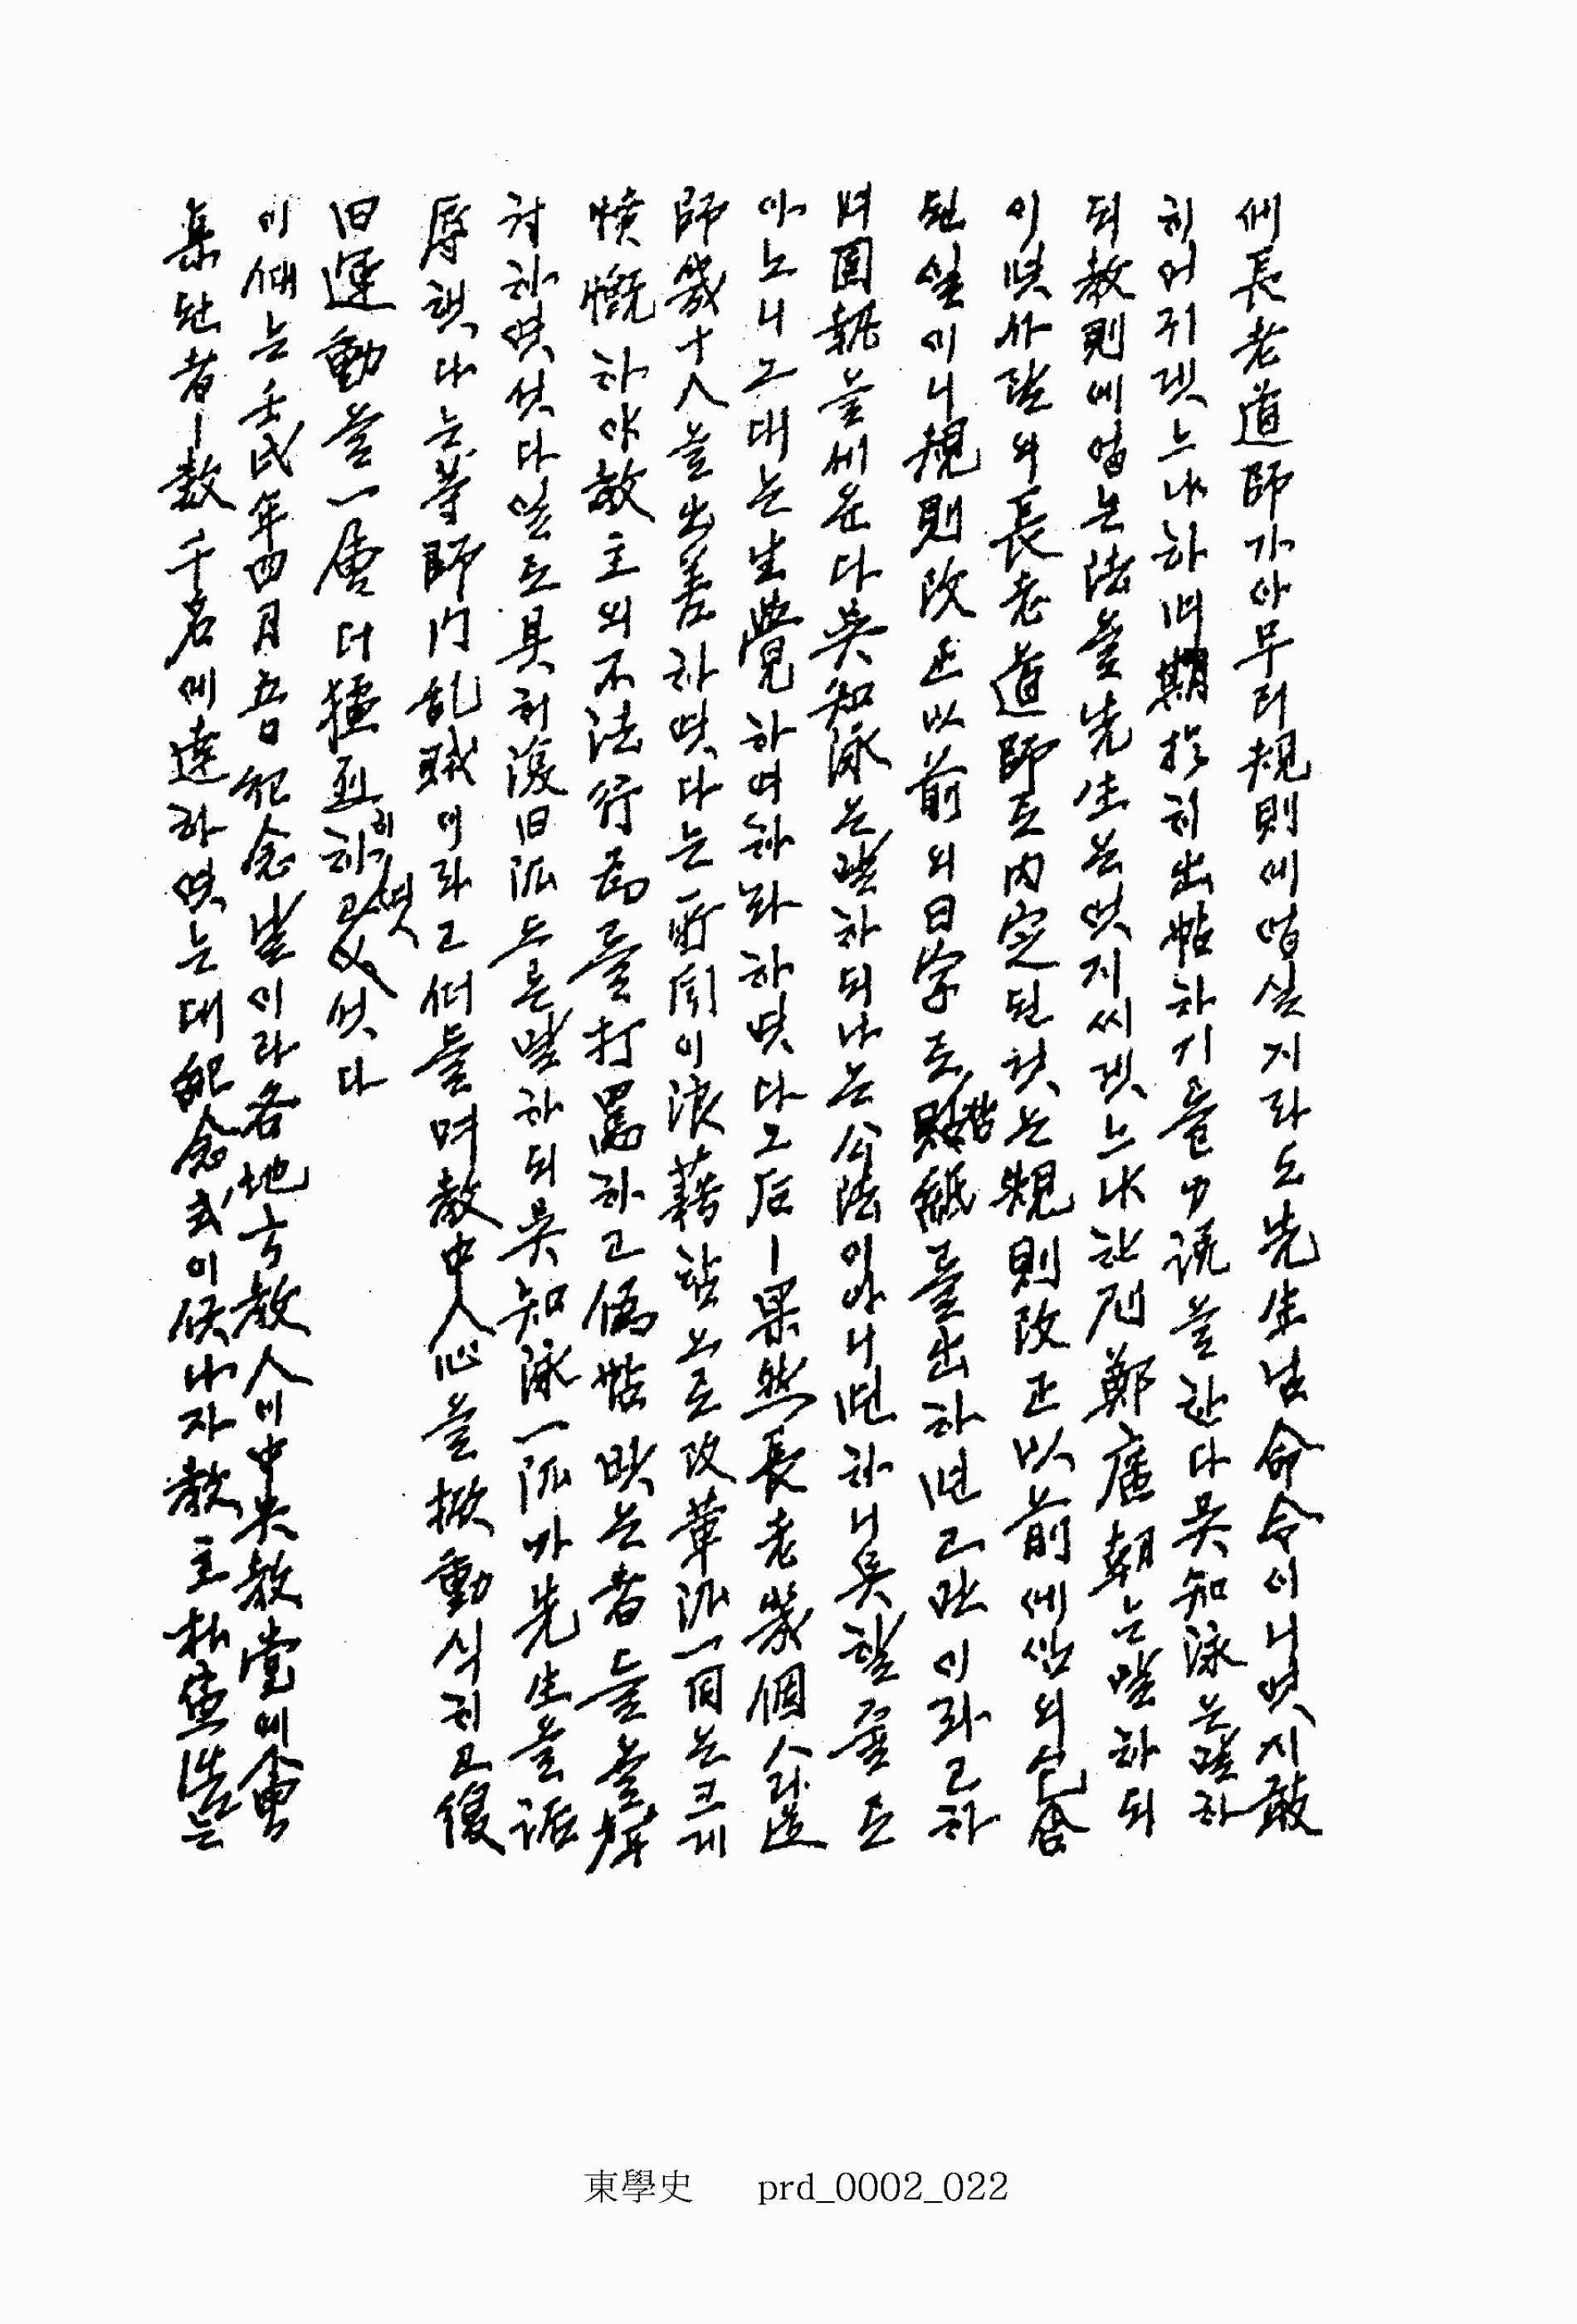 에長老道師가아무리規則에업실지라도先生님命令이니엇지敢
히어긔겟느냐하며期於히出帖하기를力說을한다吳知泳은말하
되敎則에업는法을先生은엇지씨겟느냐한則鄭廣朝는말하되
이엿사람의長老道師도內定된것은規則改正以前에
된일이니規則改正以前의日字로紙를出하면고만이라고하
며固執을세운다吳知泳은말하되나는公法이아니면하니할줄도
아노니그대는生覺하여하라하엿다그后ㅣ果然長老幾個人과道
師幾十人을出善하엿다는所聞이浪藉함으로改革派一同은크게
憤慨하야敎主의不法行爲를打罵하고僞帖밧은者들을
討하엿섯다일로具히復旧派들은말하되吳知泳一派가先生을詬
辱햇다는等師門乱賊이라고떠들며敎中人心을掀動식히고復
旧運動을一層더猛烈히하엿섯다
이때는壬戌年四月五日紀念날이라各地方敎人이中央敎堂에會
集된者ㅣ數千名에達하엿는대紀念式이긋나자敎主朴寅浩는
東學史 prd_0002_022